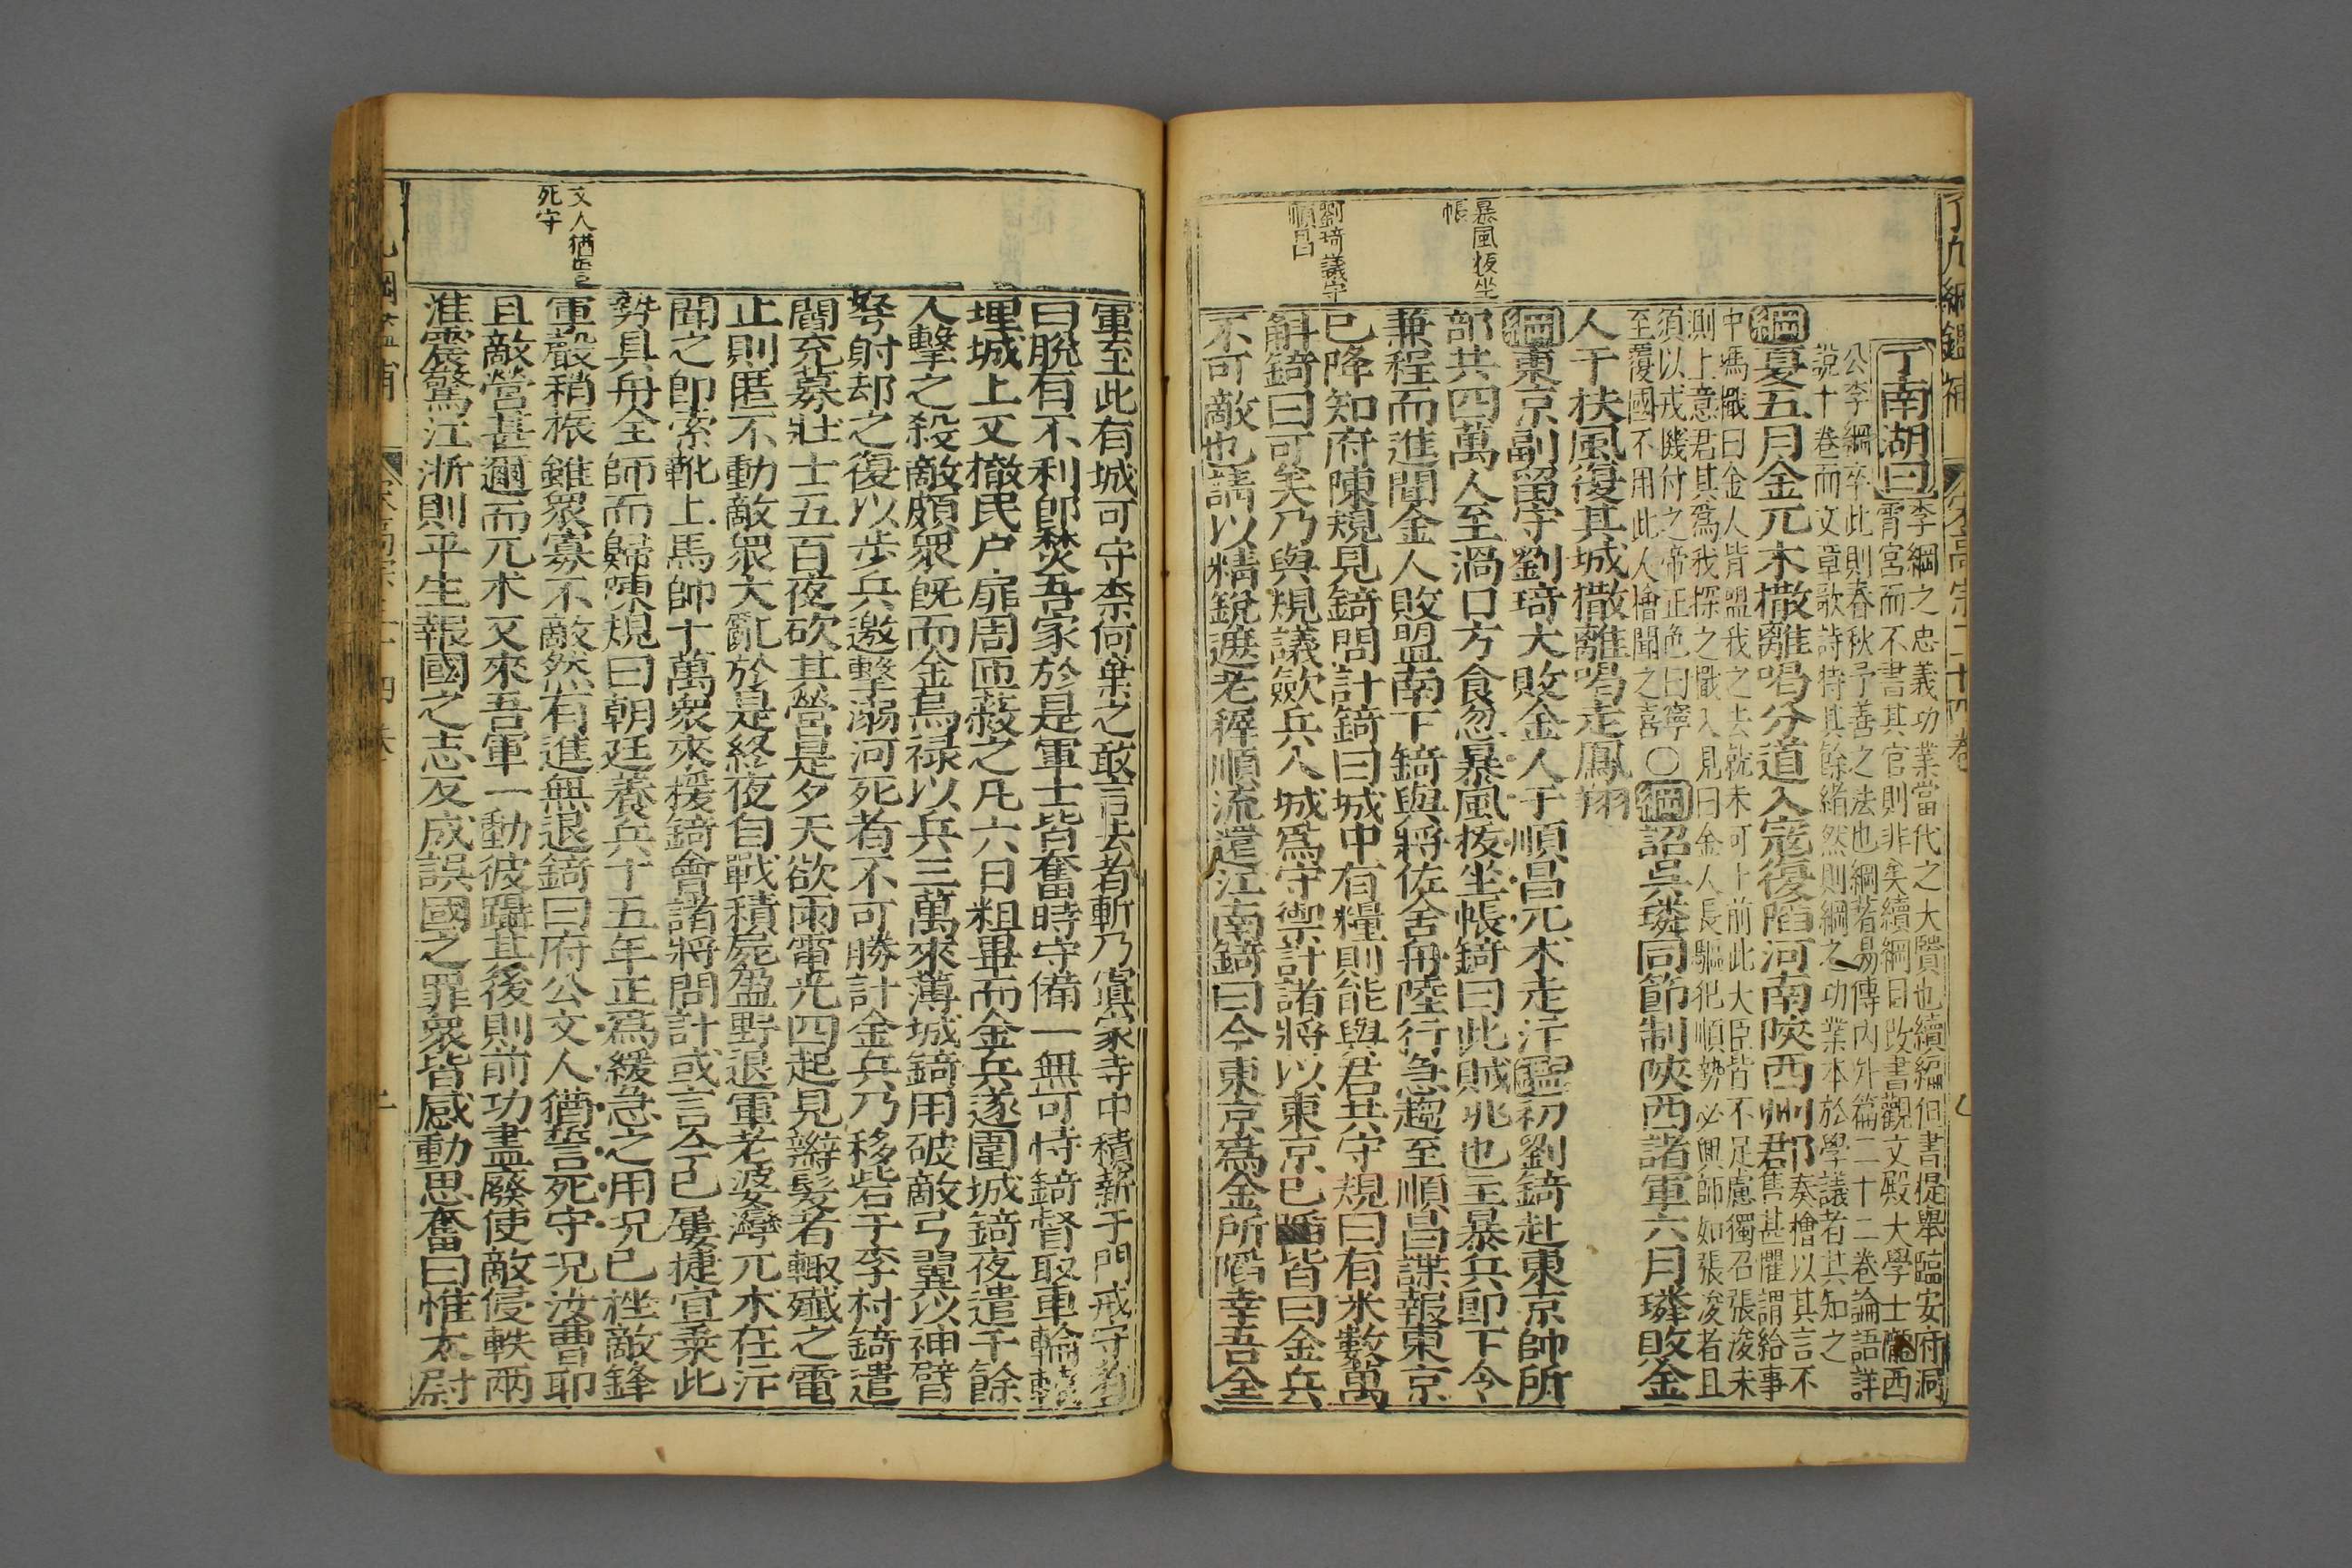 了凡綱鑑補
宋高宗 二十四卷
丁南湖曰李綱之忠義功業當代之大賢也續編但書提舉臨安府洞
霄宮而不書其官則非矣續綱目改書觀文殿大學士隴西
公李綱卒此則春秋予善之法也綱著易傳內外篇二十二卷論語詳
說十卷而文章歌詩特其餘緒然則綱之功業本於學議者其知之
綱夏五月金兀朮撒離喝分道入寇復陷河南陝西州郡奏檜以其言不
雋甚懼謂給事
中馮檝曰金人背盟我之去就未可卜前此大臣皆不足慮獨召張浚未
則上意君其爲我探之檝入見曰金人長驅犯順勢必興師如張浚者且
須以戎機付之帝正色曰寧
至覆國不用此人檜聞之喜○綱詔吳璘同節制陝西諸軍六月璘敗金
人于扶風復其城撒離喝走鳳翔
綱東京副留守劉琦大敗金人于順昌兀朮走汴鑑初劉錡赴東京帥所
部共四萬人至渦口方食忽暴風拔坐帳錡曰此賊兆也主暴兵即下令
兼程而進聞金人敗盟南下錡與將佐舍舟陸行急趨至順昌諜報東京
已降知府陳規見錡問計錡曰城中有糧則能與君共守規曰有米數萬
斛錡曰可矣乃與規議歛兵入城爲守禦計諸將以東京已陷皆曰金兵
不可敵也請以精銳遮老稺順流還江南錡曰今東京爲金所陷幸吾全
暴風拔坐
帳
劉琦議守
順昌
軍至此有城可守柰何棄之敢言去者斬乃寘家寺中積薪于門戒守者
曰脫有不利卽焚吾家於是軍士皆奮時守備一無可恃錡督取車輪轅
埋城上又撤民户扉周匝蔽之凡六日粗畢而金兵遂圍城錡夜遣千餘
人擊之殺敵頗衆既而金烏禄以兵三萬來薄城錡用破敵弓翼以神臂
弩射却之復以步兵邀擊溺河死者不可勝計金兵乃移砦于李村錡遣
閻充募壯士五百夜砍其營是夕天欲雨電光四起見辮髪者輙殲之電
止則匿不動敵衆大亂於是終夜自戰積屍盈野退軍老婆灣兀朮在汴
聞之卽索靴上馬帥十萬衆來援錡會諸將問計或言今已屢捷宜乘此
勢具舟全師而歸陳規曰朝廷養兵十五年正爲緩急之用况已挫敵鋒
軍聲稍振雖衆寡不敵然有進無退錡曰府公文人猶誓死守况汝曹耶
且敵營甚邇而兀朮又來吾軍一動彼躡其後則前功盡廢使敵侵軼兩
淮震驚江浙則平生報國之志反成誤國之罪衆皆感動思奮曰惟太尉
文人猶誓
死守